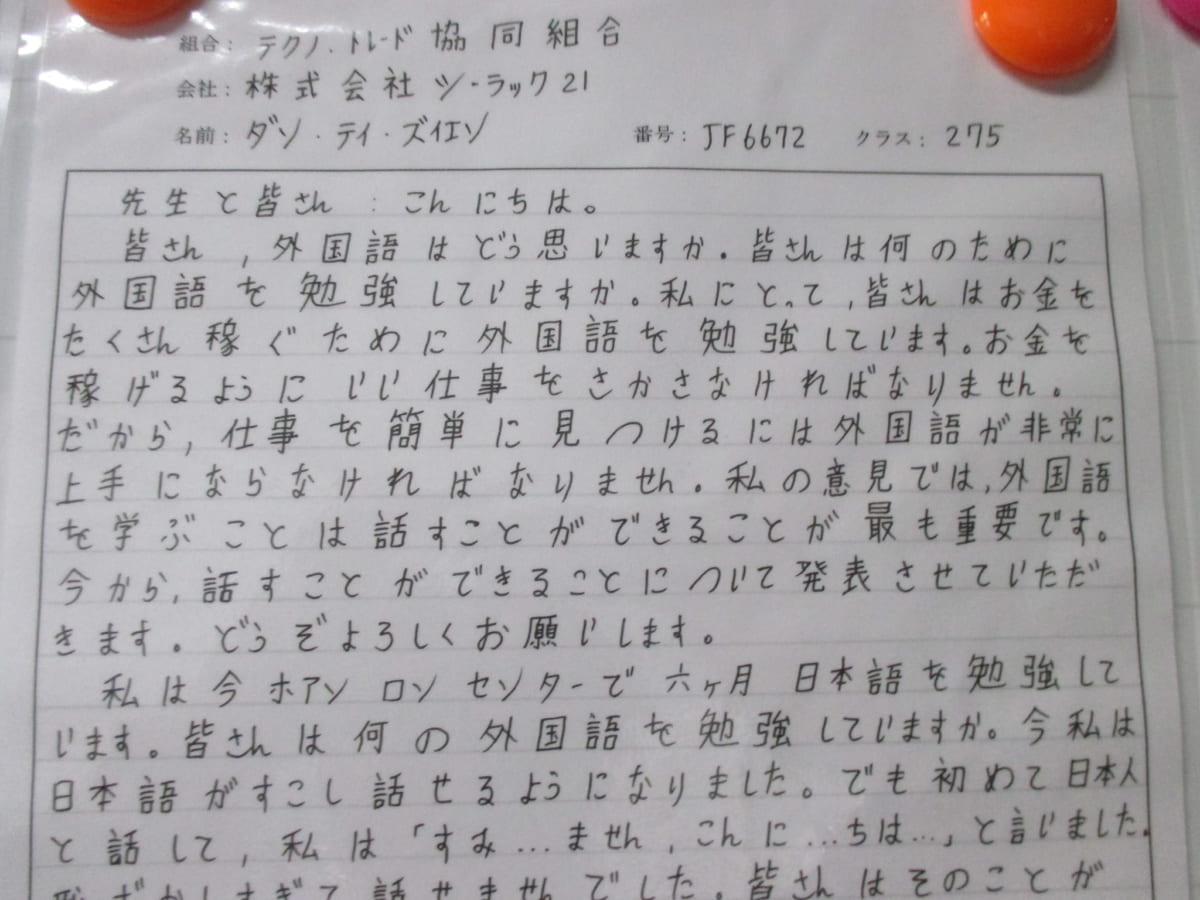 組合: テクノ・トレード 協同組合
会社: 株式会社 ツ・ラック21
名前: ダソ・ティ・ズイエソ 番号: JF6672 クラス: 275
先生と皆さん : こんにちは。
皆さん , 外国語はどう思いますか. 皆さんは何のために
外国語を勉強していますか。私にとって, 皆さんはお金を
たくさん稼ぐために外国語を勉強しています。お金を
稼げるようにいい仕事をさかさなければなりません。
だから, 仕事を簡単に見つけるには外国語が非常に
上手にならなければなりません. 私の意見では, 外国語
を学ぶことは話すことができることが最も重要です。
今から, 話すことができることについて発表させていただ
きます. どうぞよろしくお願いします。
私は今ホアソ ロソ セソターで 六ヶ月 日本語を勉強して
います。皆さんは何の外国語を勉強していますか. 今私は
日本語がすこし話せるようになりました。でも初めて日本人
と話して, 私は「すみ...ません, こんに...ちは...」と言いました.
恥ずかしすぎて話せませんでした. 皆さんはそのことが